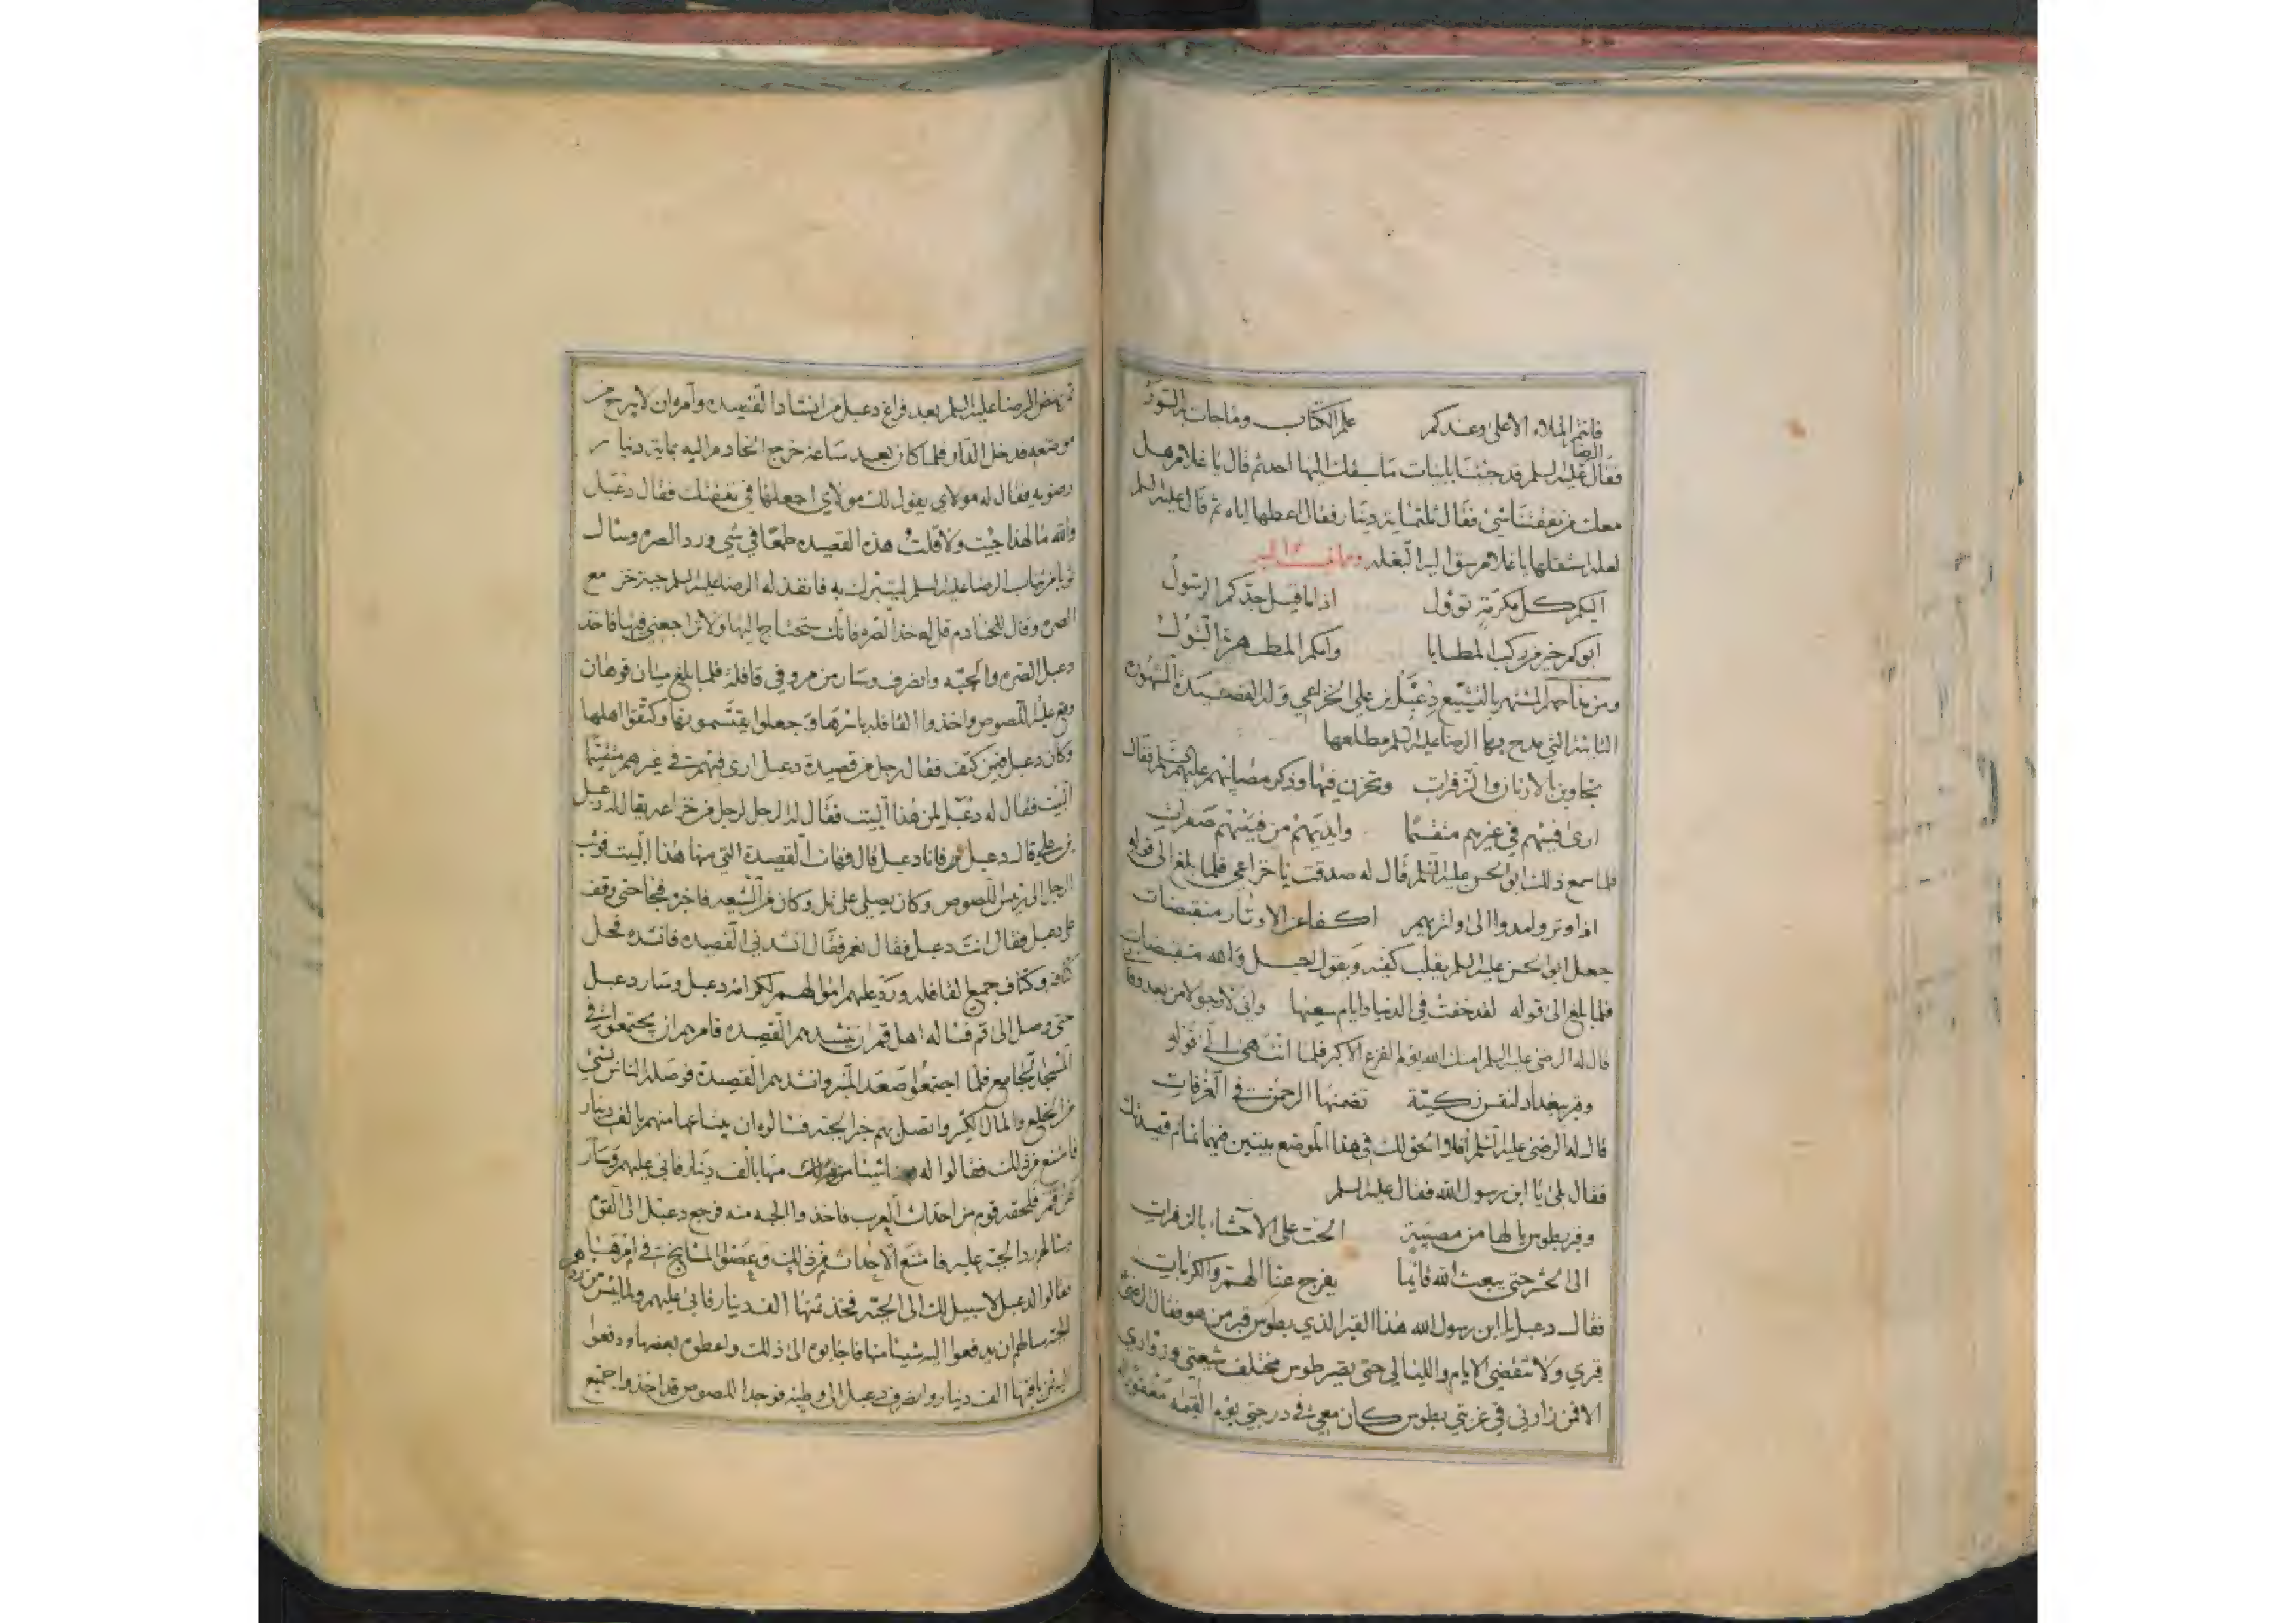 فانتم الملاء الاعلى وعندكم علم الكتاب وماجات به السور
فقال الرضا عليه السلم قد جئتنا بابيات ما سبقك اليها احد ثم قال يا غلام هل
معك من نفقتنا شئ فقال ثلثماية دينار فقال اعطها اياه ثم قال عليه السلم
لعله استقلها يا غلام سق اليه البغله
اليكم كل مكرمة تؤول اذا ما قيل جدكم الرسول
ابوكم خير من ركب المطايا وامكم المطهرة البتول
ومن مداحهم المشتهر بالتشيع دعبل بن علي الخزاعي وله القصيدة المشهوره
التائية التي مدح بها الرضا عليه السلم مطلعها
تجاوبن بالارنان والزفرات وتحزن فيها وذكر مصيباتهم عليهم السلم فقال
ارى فيئهم في غيرهم متقسما وايديهم من فيئهم صفرات
فلما سمع ذلك ابو الحسن عليه السلم قال له صدقت يا خزاعي فلما بلغ الى قوله
اذا وتروا مدوا الى واتريهم اكفا عن الاوتار منقبضات
جعل ابو الحسن عليه السلم يقلب كفيه ويقول اجل والله منقبضات
فلما بلغ الى قوله لقد خفت في الدنيا وايام سعيها واني لارجو الامن بعد وفاتي
قال له الرضى عليه السلم امنك الله يوم الفزع الاكبر فلما انتهى الى قوله
وقبر ببغداد لنفس زكية تضمنها الرحمن في الغرفات
قال له الرضى عليه السلم افلا الحق لك في هذا الموضع بيتين فيهما تمام قصيدتك
فقال بلى يا ابن رسول الله فقال عليه السلم
وقبر بطوس يا لها من مصيبة الحت على الاحشاء بالزفرات
الى الحشر حتى يبعث الله قائما يفرج عنا الهم والكربات
فقال دعبل يا ابن رسول الله هذا القبر الذي بطوس قبر من هو فقال الرضى
قبري ولا تنقضي الايام والليالي حتى يصير طوس مختلف شيعتي وزواري
الا فمن زارني في غربتي بطوس كان معي في درجتي يوم القيمه مغفورا له
ثم نهض الرضا عليه السلم بعد فراغ دعبل من انشاد القصيده وامره ان لا يبرح من
موضعه فدخل الدار فلما كان بعد ساعة خرج الخادم اليه بماية دينار
رضويه فقال له مولاي يقول لك مولاي اجعلها في نفقتك فقال دعبل
والله ما لهذا جيت ولا قلت هذه القصيده طمعا في شي ورد الصره وسال
ثوبا من ثياب الرضا عليه السلم ليتبرك به فانفذ له الرضا عليه السلم جبة خز مع
الصره وقال للخادم قل له خذ الصره فانك ستحتاج اليها ولا تراجعني فيها فاخذ
دعبل الصره والجبه وانصرف وسار من مرو في قافلة فلما بلغ ميان قوهان
وقع عليه اللصوص واخذوا القافله باسرها وجعلوا يقتسمونها وكتفوا اهلها
وكان دعبل فيمن كتف فقال رجل من قصيدة دعبل ارى فيئهم في غيرهم متقسما
البيت فقال له دعبل لمن هذا البيت فقال له الرجل لرجل من خزاعه يقال له دعبل
بن علي قال دعبل فانا دعبل قال قصيدة التي منها هذا البيت فوثب
الرجل الى رئيس اللصوص وكان يصلي على تل وكان من الشيعه فاخبره فجا حتى وقف
على دعبل فقال انت دعبل فقال نعم فقال انشدني القصيده فانشده فحل
كتافه وكتاف جميع القافله ورد عليهم اموالهم لكرامه دعبل وسار دعبل
حتى وصل الى قم فساله اهل قم ان ينشدهم القصيده فامرهم ان يجتمعوا في
المسجد الجامع فلما اجتمعوا صعد المنبر وانشدهم القصيدة فوصله الناس بشئ
من الخلع والمال الكثير واتصل بهم خبر الجبه فسالوه ان يبتاعها منهم بالف دينار
فامتنع من ذلك فقالوا له شيئا منها بالف دينار فابى عليهم وسار
عن قم فلحقه قوم من احداث العرب فاخذوا الجبه منه فرجع دعبل الى القوم
وسالهم رد الجبه عليه فامتنع الاحداث من ذلك وعصوا المشايخ في امرها
فقالوا لدعبل لا سبيل لك الى الجبه فخذ ثمنها الف دينار فابى عليهم ولما يئس من ردهم
الجبه سالهم ان يدفعوا اليه شيئا منها فاجابوه الى ذلك واعطوه بعضها ودفعوا
اليه ثمن باقيها الف دينار وانصرف دعبل الى وطنه فوجد اللصوص قد اخذوا جميع